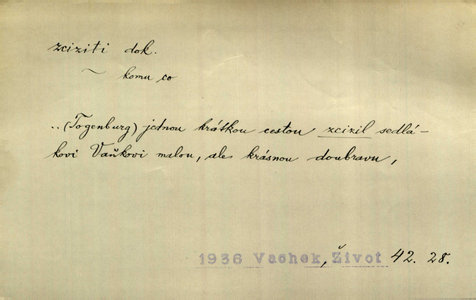 zciziti dok.
~ komu co
..(Togenburg) jednou krátkou cestou zcizil sedlá-
kovi Vaňkovi malou, ale krásnou doubravu,
1936 Vachek, Život 42. 28.